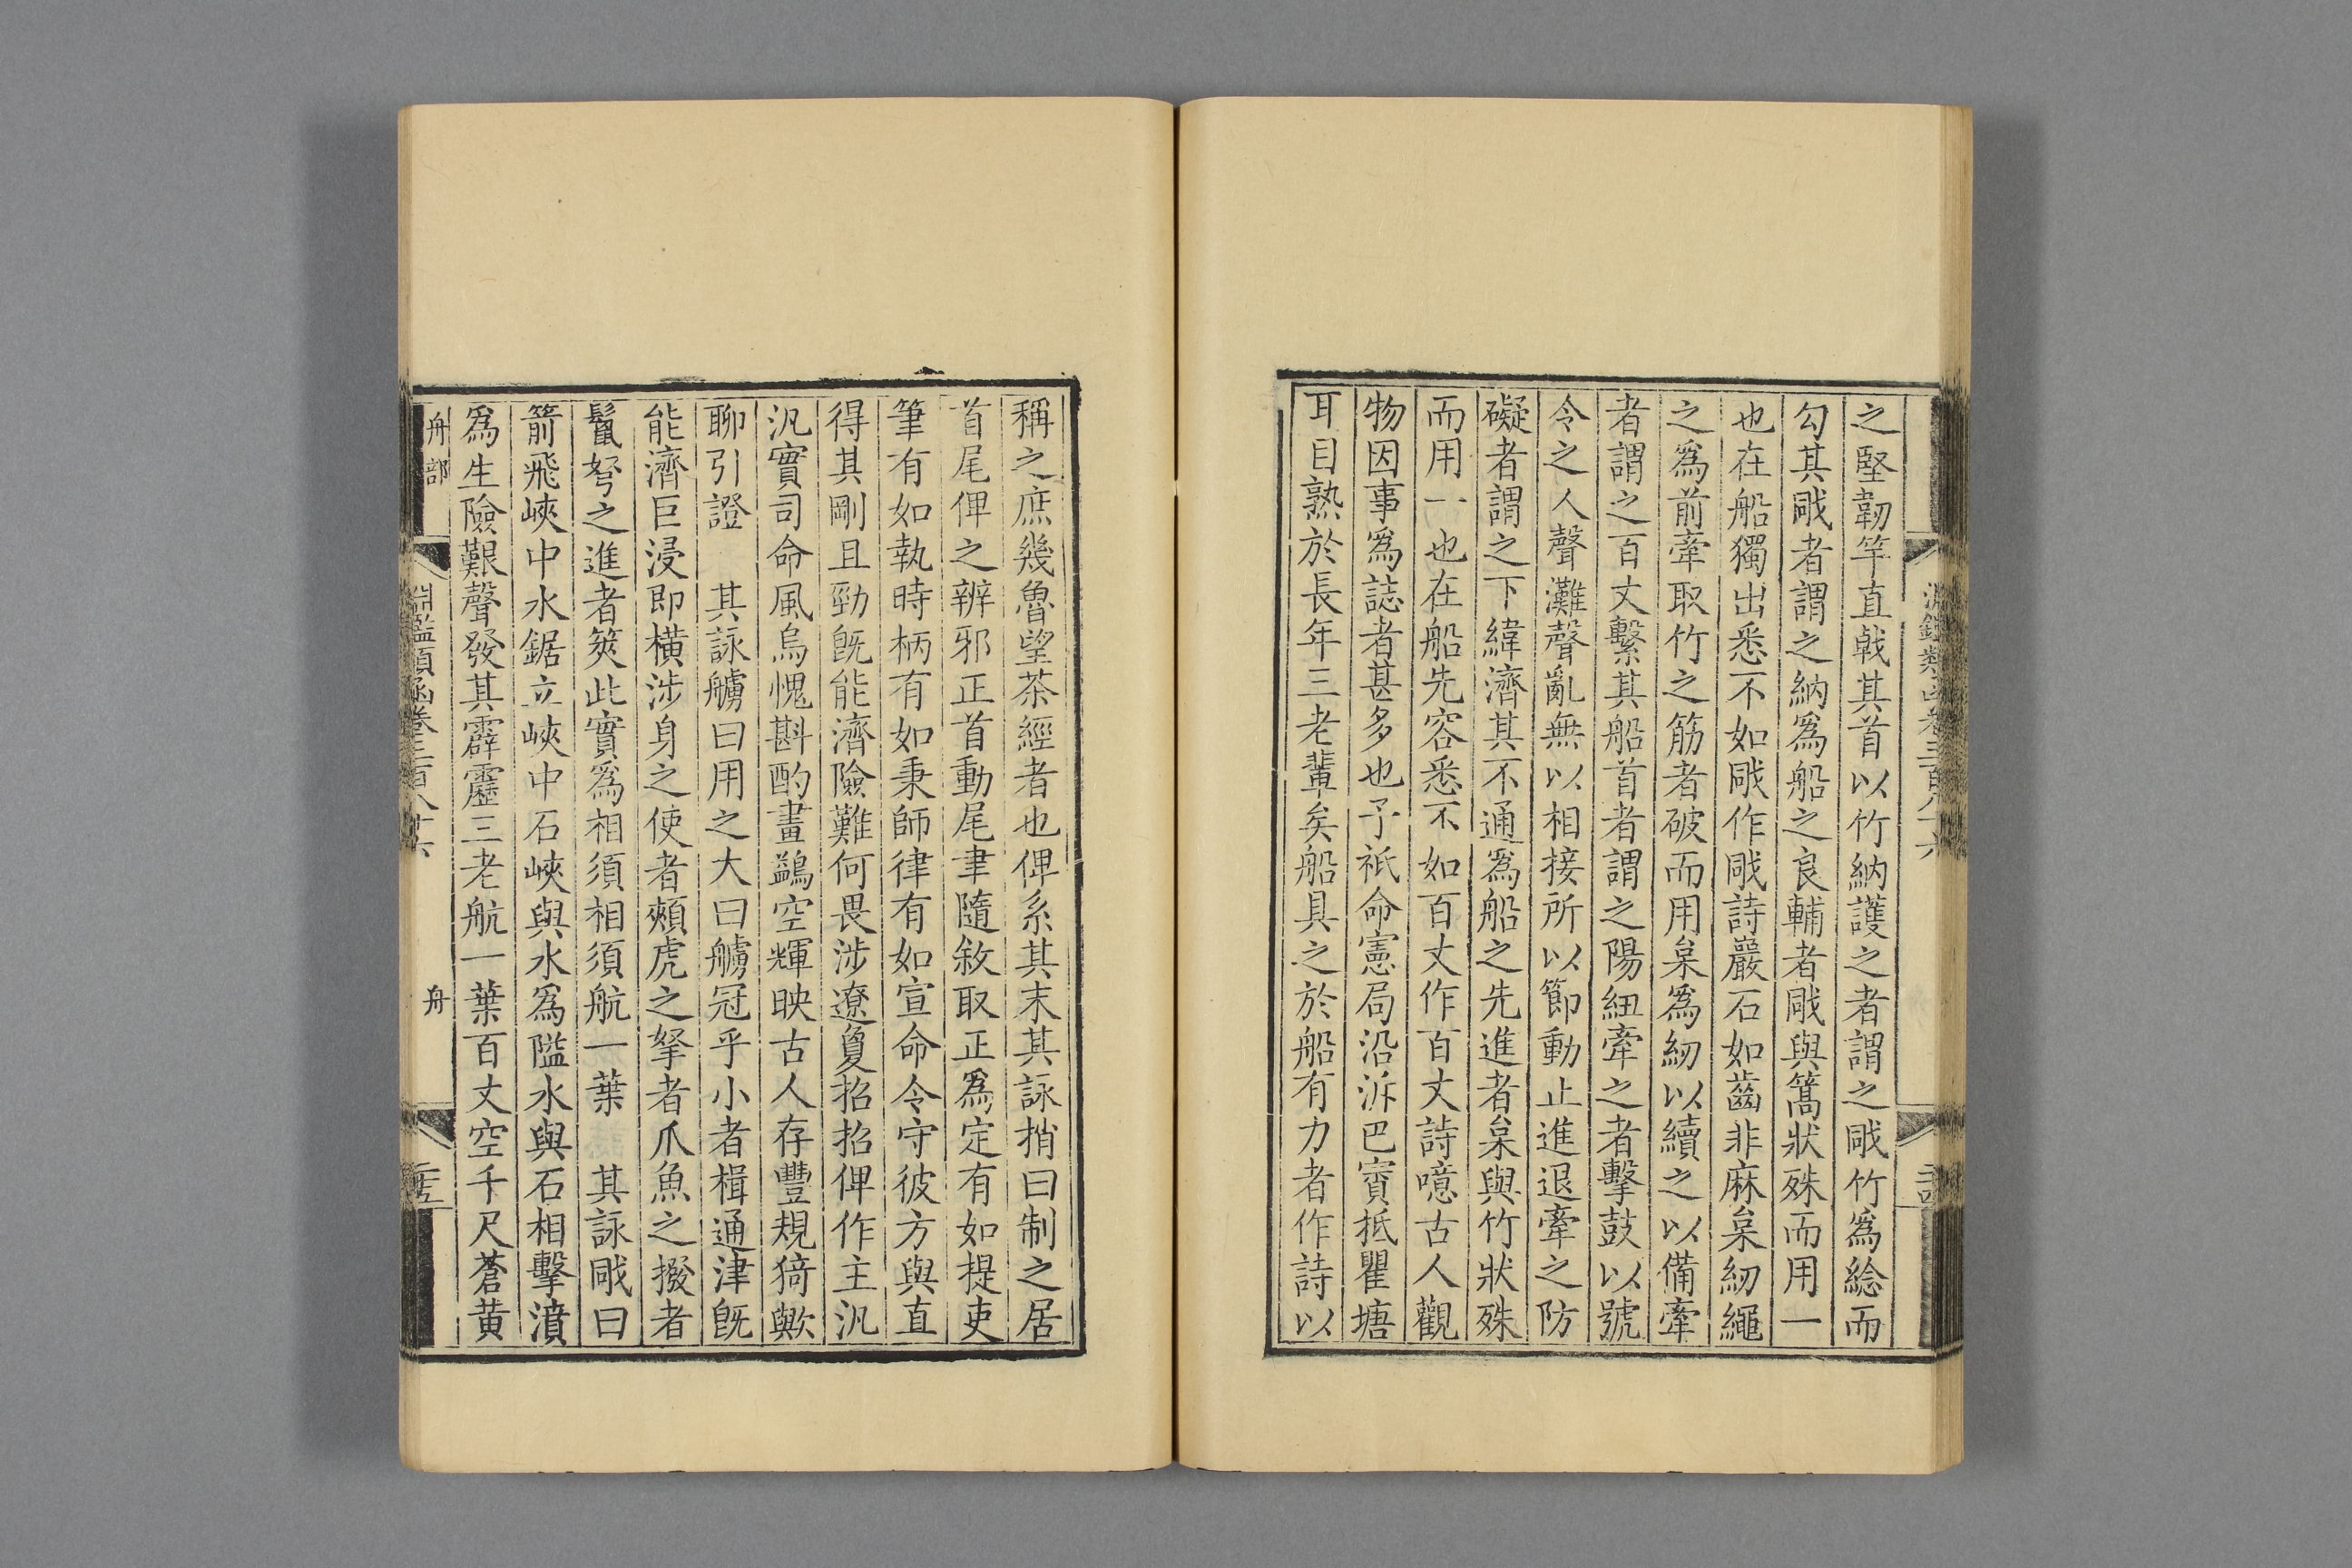 之堅韌竿直戟其首以竹納護之者謂之戙竹爲䋎而
勾其戙者謂之納爲船之良輔者戙與篙狀殊而用一
也在船獨出悉不如戙作戙詩巖石如齒非麻枲紉繩
之爲前牽取竹之筋者破而用枲爲紉以續之以備牽
者謂之百丈繫其船首者謂之陽紐牽之者擊鼓以號
令之人聲灘聲亂無以相接所以節動止進退牽之防
礙者謂之下緯濟其不通爲船之先進者枲與竹狀殊
而用一也在船先容悉不如百丈作百丈詩噫古人觀
物因事爲誌者甚多也予祗命憲局沿泝巴賨抵瞿塘
耳目熟於長年三老輩矣船具之於船有力者作詩以
稱之庶幾魯望茶經者也俾系其末其詠捎曰制之居
首尾俾之辨邪正首動尾聿隨敘取正爲定有如提吏
筆有如執時柄有如秉師律有如宣命令守彼方與直
得其剛且勁旣能濟險難何畏涉遼敻招招俾作主汎
汎實司命風烏愧斟酌畫鷁空輝映古人存豐規猗歟
聊引證　其詠艣曰用之大曰艣冠乎小者楫通津旣
能濟巨浸即橫涉身之使者頰虎之拏者爪魚之撥者
鬣弩之進者筴此實爲相須相須航一葉　其詠戙曰
箭飛峽中水鋸立峽中石峽與水爲隘水與石相擊濆
爲生險艱聲發其霹靂三老航一葉百丈空千尺蒼黃
舟部
淵鑑類函卷三百八十六
舟
二十五